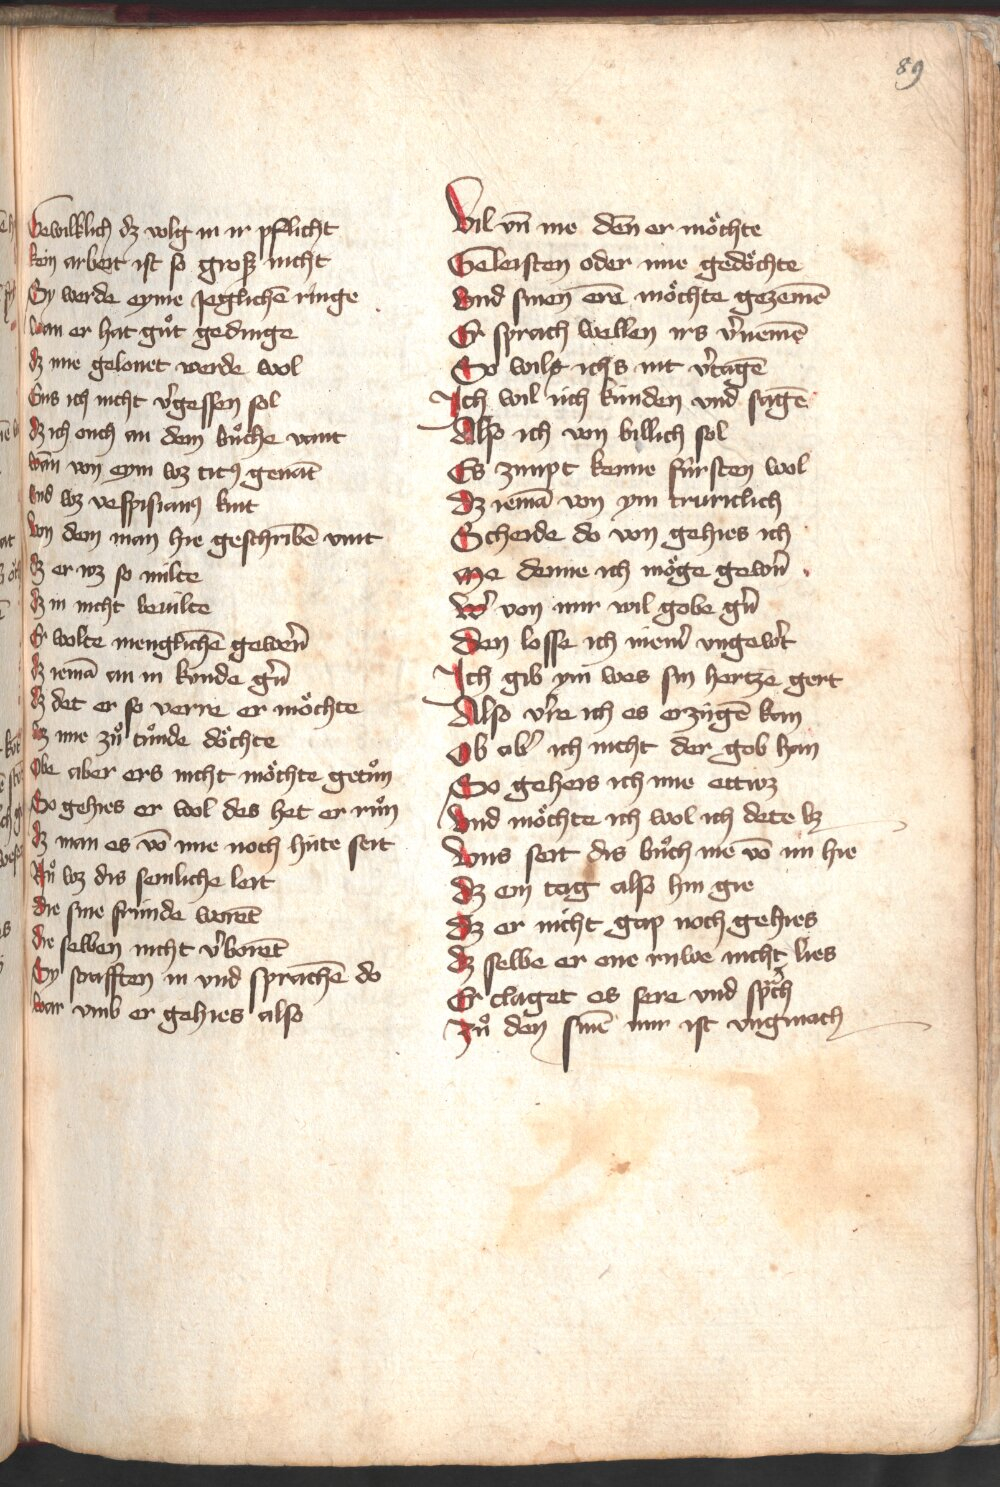 89
Gewilklich dz volg in ir pflicht
kein arbeit ist so grosz nicht
Sy werde eyme Jeglichē ringe
wan er hat gůt gedinge
dz ime gelonet werde wol
Eins ich nicht v̓gessen sol
dz ich ouch an dem bůche vant
wan von eym wz titꝰ genāt
und wz vespisianꝰ kint
von dem man hie geschribē vint
dz er wz so milte
dz in nicht bevilte
Er wolte menglichē gewern̄
dz iemā an in kunde gern̄
dz det er so verre er möchte
dz ime zů tůnde döchte
Obe aber ers nicht möchte getůn
So gehies er wol des het er rům
dz man es vō ime noch hüte seit
Nů wz dis semliche leit
die sine fründe worēt
die selben nicht v̓borēt
Sy strafften in vnd sprachē do
war vmb er gehies also
Vil vn̄ me den̄ er möchte
Geleisten oder ime gedöchte
vnd sinen erē möchte gezemē
Er sprach wellen irs v̓nemē
So wils ichs nit v̓tagē
Ich wil üch künden vnd sagē
Also ich von billich sol
Es zimpt keime fürsten wol
dz iemā von ym trurtlich
Scheide do von gehies ich
me denne ich möge gewern̄
wer von mir wil gobe gern̄
den losse ich niem̄ vngewert
Ich gib ym wes sin hertze gert
Also verre ich es erzügē kan
Ob ab̓ ich nicht der gob han
So geheis ich ime ettwz
vnd möchte ich wol ich dete bz
vns seit dis bůch me vō im hie
dz ein tag also hin gie
dz er nicht gap noch gehies
dz selbe er ene rüwe nicht lies
Er claget es sere vnd sprach
Zů den sinē mir ist vngmach